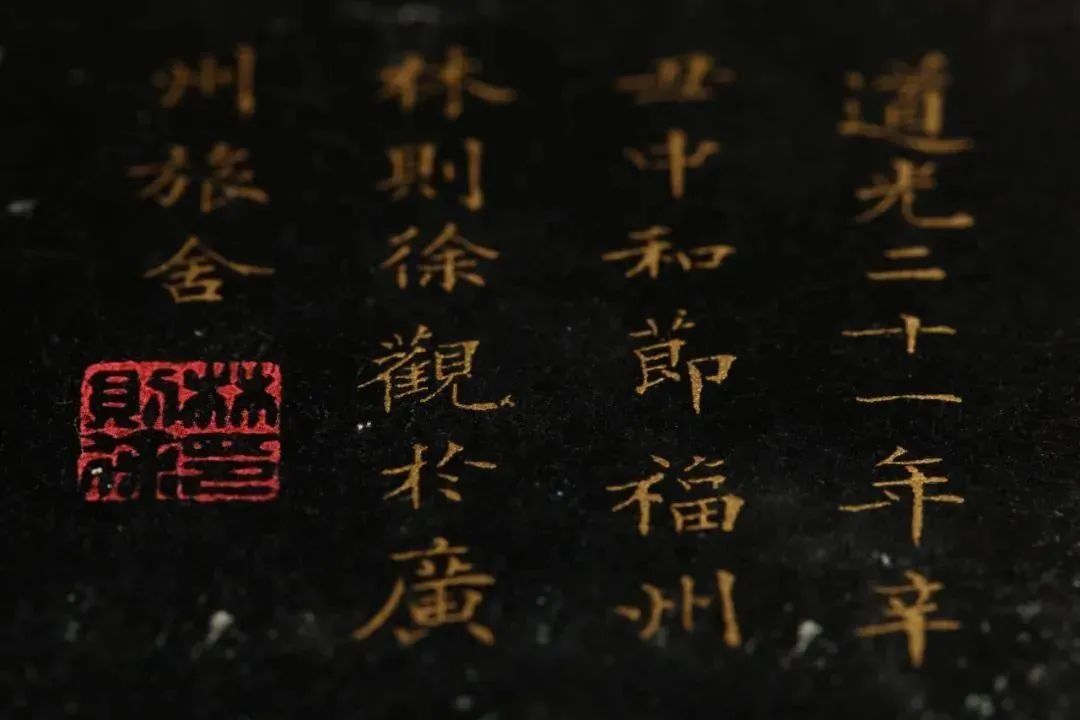 道光二十一年辛
丑中和節福州
林則徐觀於廣
州旅舍